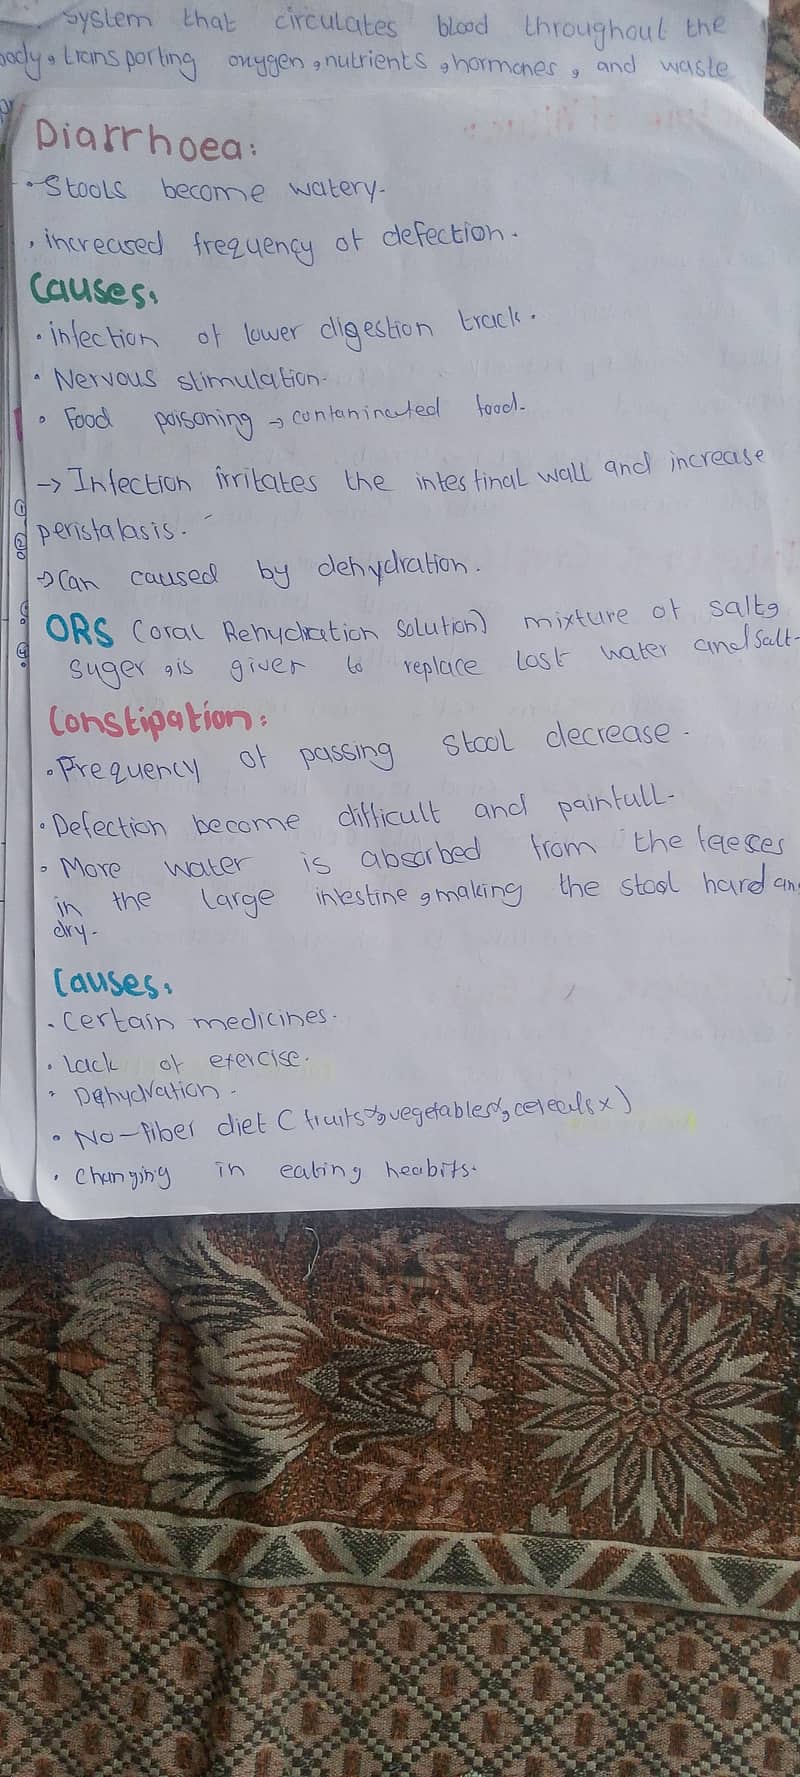 system that circulates blood throughout the
body, transporting oxygen, nutrients, hormones, and waste
Diarrhoea:
• Stools become watery.
• increased frequency of defection.
Causes:
• infection of lower digestion track.
• Nervous stimulation.
• Food poisoning → contanineted food.
→ Infection irritates the intestinal wall and increase
peristalasis.
→ Can caused by dehydration.
ORS (oral Rehydration solution) mixture of salt,
suger, is given to replace lost water and salt.
Constipation:
• Frequency of passing stool decrease.
• Defection become difficult and painfull.
• More water is absorbed from the faeces
in the large intestine, making the stool hard an
dry.
Causes:
• Certain medicines.
• Lack of exercise.
• Dehydration.
• No-fiber diet (fruits x, vegetables x, cereals x)
• Changing in eating heabits.